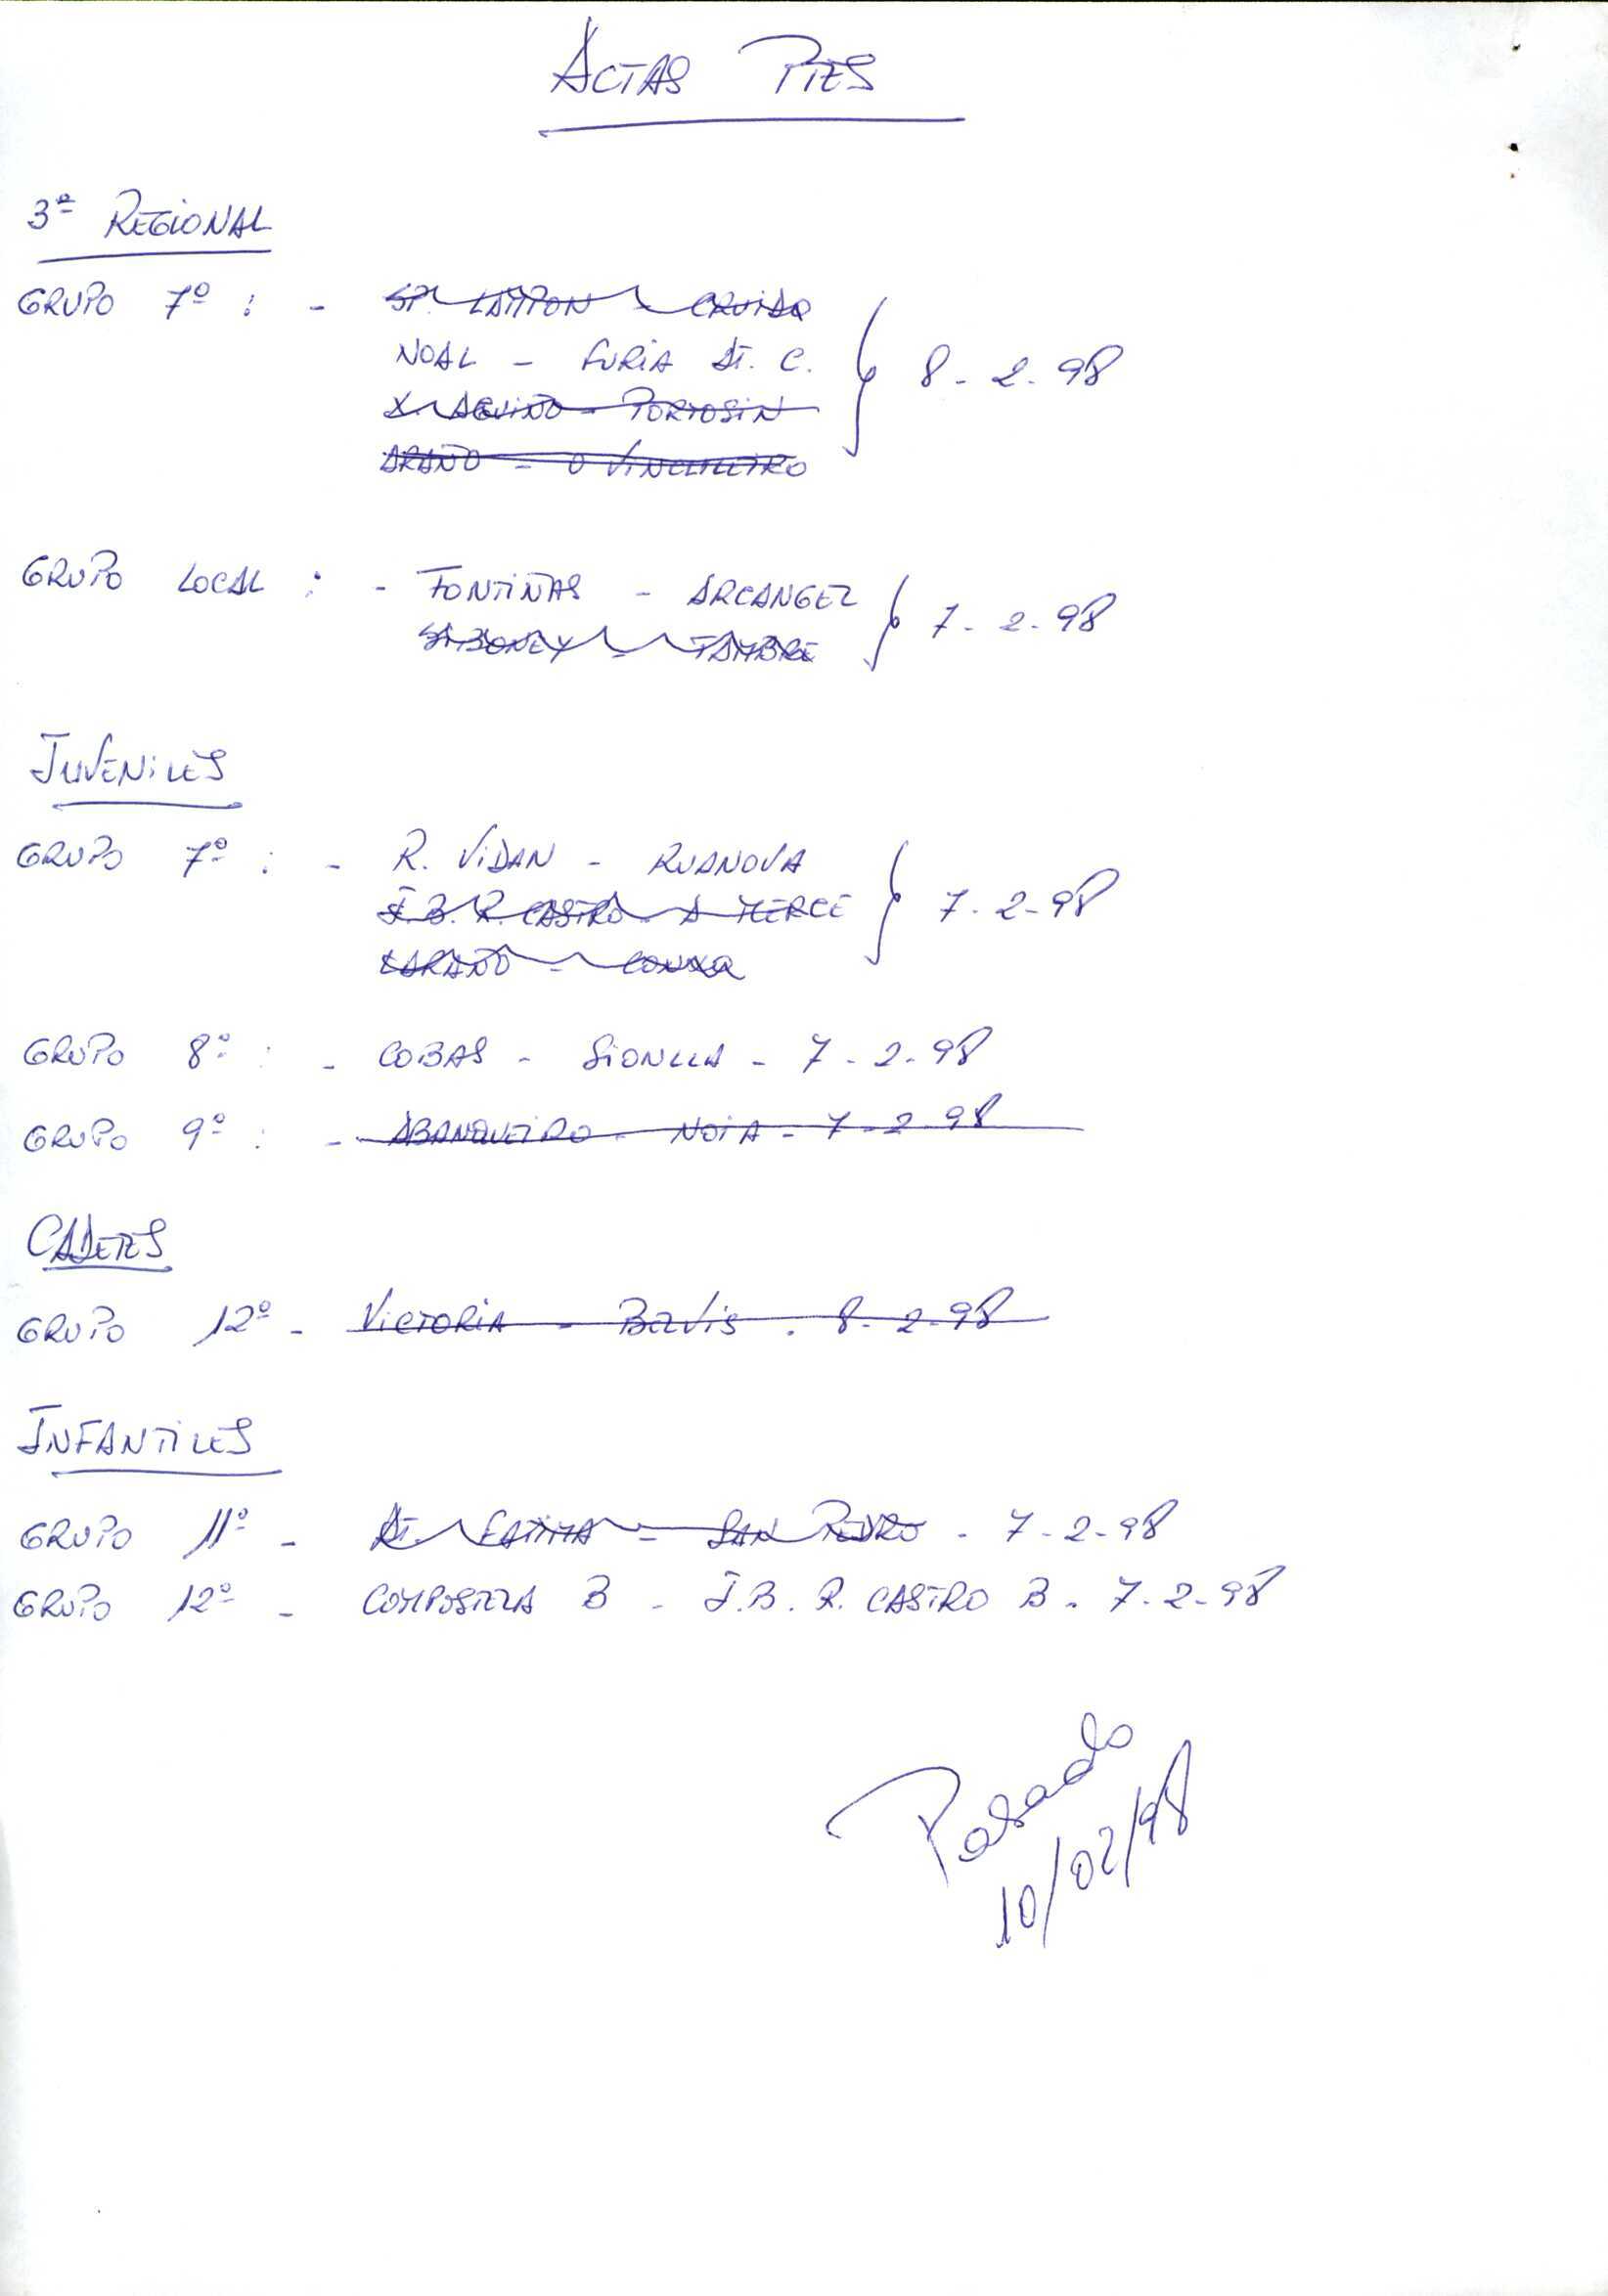 ACTAS PTES
3ª REGIONAL
GRUPO 7º : - SP. LAMPON - CRUIDO
NOAL - FURIA AT. C. 8-2-98
X. AGUIÑO - PORTOSIN
ARAÑO - O VINCUEIRO
GRUPO LOCAL : - FONTIÑAS - ARCANGEL 7-2-98
SIBONEY - TAMBRE
JUVENILES
GRUPO 7º : - R. VIDAN - RUANOVA
J.B. R. CASTRO - A MERCE 7-2-98
LARAÑO - CONXO
GRUPO 8º : - COBAS - SIONLLA - 7-2-98
GRUPO 9º : - ABANQUEIRO - NOIA - 7-2-98
CADETES
GRUPO 12º - VICTORIA - BELVIS . 8-2-98
INFANTILES
GRUPO 11º - AT. FATIMA - SAN PEDRO - 7-2-98
GRUPO 12º - COMPOSTELA B - J.B. R. CASTRO B - 7-2-98
Pasado
10/02/98